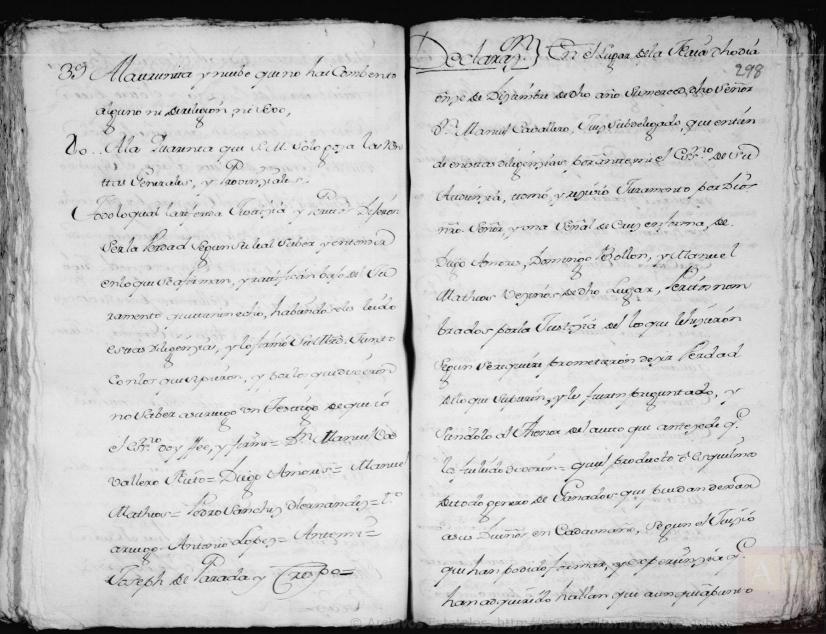 39 A la treinta y nuebe que no hai Combento
alguno ni de religion, ni Clero,
40.. A la quarenta que S.M. Solo goza las Ren
ttas Generales, y Provinziales.
Todo lo qual la referida Justizia y Dijeron
Ser la Verdad Segun Su leal Saber y entender
en lo que Se afirman, y ratifican bajo de el Ju
ramento que tienen echo, habiendoseles leido
estas diligenzias, y lo firmó Su Mrd. Junto
Con los que Supieron, y por los que dixeron
no Saber a su ruego un Testigo de que io
el Ess.no doy fee, y firmé = Dn Manuel Ca
vallero = Diego Amores = Manuel
Mathios = Pedro Sanchez Hernandez = to
a ruego Antonio Lopez = Antemi =
Joseph de Parada y Crespo =
Declarazn } En el Lugar de la Teja a dho dia
298
onze de Diziembre de dho año Su merced dho Señor
Dn Manuel Cavallero, Juez Subdelegado, que entien
de en esttas diligenzias, por ante mi el Ess.no de Su
Audienzia, tomó, y rezivió Juramento por Dios
nro Señor, y una Señal de Cruz en forma, de
Diego Amores, Domingo Rollon, y Manuel
Mathios Vezinos de dho Lugar, Peritos nom
brados por la Justizia de el los que lo hizieron
Segun Se requiere prometieron dezir Verdad
de lo que Supieren, y les fuere preguntado, y
Siendolo al thenor de el auto que antezede qe
les fue leido dixeron = que el producto de esquilmo
de todo genero de Ganados que puedan dexar
a sus Dueños en Cada un año, Segun el Juizio
que han podido formar, y experienzia qe
han adquirido hallan que aunque a punto